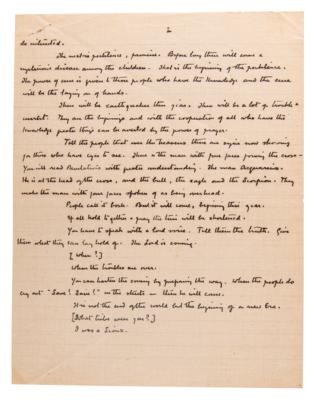 2
be intended.
The next is pestilence, famine. Before long there will come a
mysterious disease among the children. That is the beginning of the pestilence.
The power of cure is given to those people who have the knowledge and the cure
will be the laying on of hands.
There will be earthquakes this year. There will be a lot of trouble &
unrest. They are the beginnings and with the cooperation of all who have the
knowledge greater things can be averted by the power of prayer.
Tell the people that over the there are signs now showing
for those who have eyes to see. There is the man with four faces forming the cross -
You will read Revelations with greater understanding. The man Aquarius.
He is at the head of the cross, and the bull, the eagle and the Scorpion. They
make the man with four faces spoken of as being overhead.
People call it . But it will come, beginning this year.
If all hold together & pray the time will be shortened.
You have to speak with a loud voice. Tell them the truth. Give
them what they can lay hold of. The Lord is coming.
[When?]
When the troubles are over.
You can hasten the coming by preparing the way. When the people do
cry out "Save! Save!" in the streets then he will come.
It is not the end of the world but the beginning of a new Era.
[What tribe were you?]
I was a Sioux.